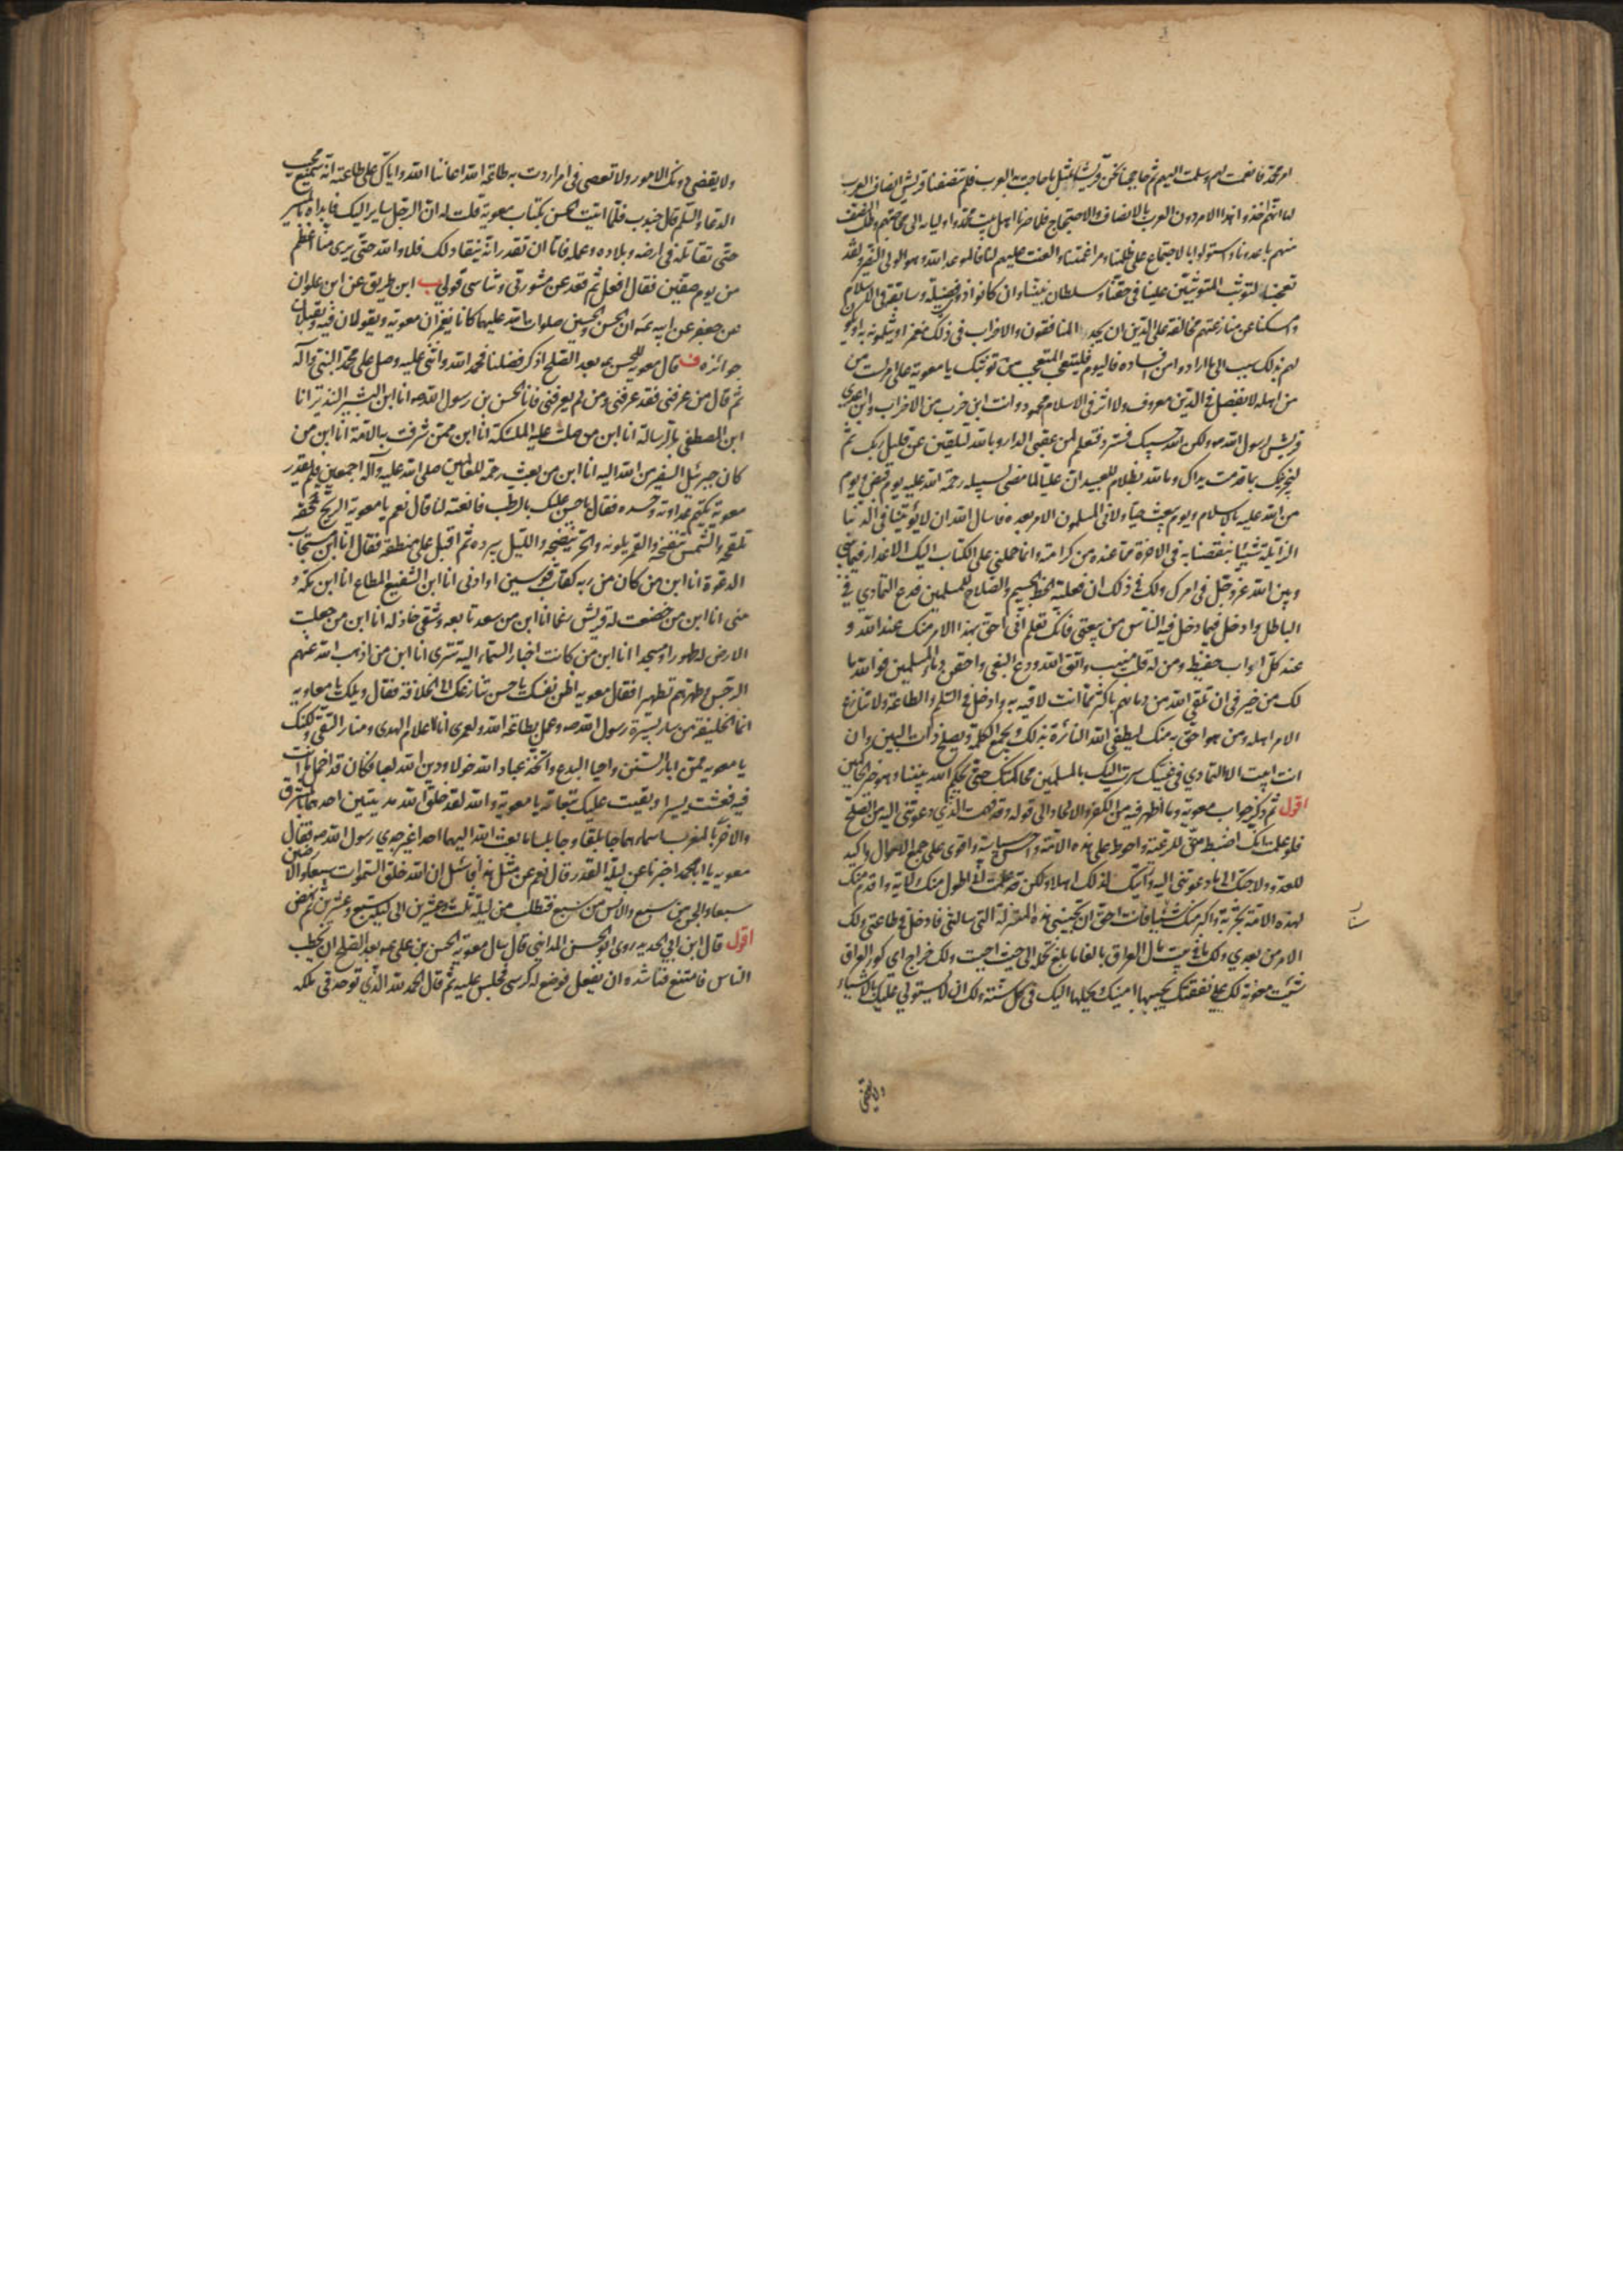 امر محمد فانعمت لهم وسلمت اليهم ثم حاججنا نحن قريشا بمثل ما حاجت به العرب فلم تنصفنا قريش انصاف العرب
لها انهم اخذوا هذا الامر دون العرب بالانصاف والاحتجاج فلما صرنا اهل بيت محمد واوليائه الى محاجتهم وطلب النصف
منهم باعدونا واستولوا بالاجتماع على ظلمنا ومراغمتنا والعنت منهم لنا فالموعد الله وهو الولى النصير ولقد
تعجبنا لتوثب المتوثبين علينا فى حقنا وسلطان نبينا وان كانوا ذوى فضيلة وسابقة فى الاسلام
وامسكنا عن منازعتهم مخافة على الدين ان يجد المنافقون والاحزاب فى ذلك مغمزا يثلمونه به او يكون
لهم بذلك سبب الى ما ارادوا من افساده فاليوم فليتعجب المتعجب من توثبك يا معوية على امر لست من
من اهله لا بفضل فى الدين معروف ولا اثر فى الاسلام محمود وانت ابن حزب من الاحزاب وابن اعدى
قريش لرسول الله ص ولكن الله حسيبك فسترد فتعلم لمن عقبى الدار وبالله لتلقين عن قليل ربك ثم
ليجزينك بما قدمت يداك وما الله بظلام للعبيد ان عليا لما مضى لسبيله رحمة الله عليه يوم قبض ويوم
من الله عليه بالاسلام ويوم يبعث حيا ولانى المسلمون الامر بعده فاسال الله ان لا يؤتينا فى الدنيا
الزايلة شيئا ينقصنا به فى الاخرة مما عنده من كرامته وانما حملنى على الكتاب اليك الاعذار فيما بينى
وبين الله عز وجل فى امرك ولك فى ذلك ان فعلته الحظ الجسيم والصلاح للمسلمين فدع التمادى فى
الباطل وادخل فيما دخل فيه الناس من بيعتى فانك تعلم انى احق بهذا الامر منك عند الله و
عند كل اواب حفيظ ومن له قلب منيب واتق الله ودع البغى واحقن دماء المسلمين فوالله ما
لك من خير فى ان تلقى الله من دمائهم باكثر مما انت لاقيه به وادخل فى السلم والطاعة ولا تنازع
الامر اهله ومن هو احق به منك ليطفئ الله النائرة بذلك ويجمع الكلمة ويصلح ذات البين وان
انت ابيت الا التمادى فى غيك سرت اليك بالمسلمين فحاكمتك حتى يحكم الله بيننا وهو خير الحاكمين
اقول ثم ذكر جواب معوية وما اظهر فيه من الكفر والالحاد الى قوله وقد فهمت الذى دعوتنى اليه من الصلح
فلو علمت انك اضبط منى للرعية واحوط على هذه الامة واحسن سياسة واقوى على جمع الاموال واكيد
للعدو ولاجبتك الى ما دعوتنى اليه ورايتك لذلك اهلا ولكن قد علمت انى اطول منك ولاية واقدم منك
لهذه الامة تجربة واكبر منك سنا فانت احق ان تجيبنى هذه المنزلة التى سالتنى فادخل فى طاعتى ولك
الامر من بعدى ولك ما فى بيت مال العراق بالغا ما بلغ تحمله الى حيث احببت ولك خراج اى كور العراق
شئت معونة لك على نفقتك يجبيها امينك ويحملها اليك فى كل سنة ولك ان لا يستولى عليك بالاشياء
ولا يقضى
ولا يقضى دونك الامور ولا تعصى فى امر اردت به طاعة الله اعاننا الله واياك على طاعته انه سميع مجيب
الدعاء والسلم قال جندب فلما اتيت الحسن بكتاب معوية قلت له ان الرجل ساير اليك فابداه بالمسير
حتى تقاتله فى ارضه وبلاده وعمله فاما ان تقدر انه ينقاد لك فلا والله حتى يرى منا اعظم
من يوم صفين فقال افعل ثم قعد عن مشورتى وتناسى قولى ب ابن طريق عن ابن علوان
عن جعفر عن ابيه ع ان الحسن والحسين صلوات الله عليهما كانا يغمزان معوية ويقولان فيه ويقبلان
جوائزه ف قال معوية للحسن ع بعد الصلح اذكر فضلنا فحمد الله واثنى عليه وصلى على محمد النبى وآله
ثم قال من عرفنى فقد عرفنى ومن لم يعرفنى فانا الحسن بن رسول الله ص انا ابن البشير النذير انا
ابن المصطفى بالرسالة انا ابن من صلت عليه الملئكة انا ابن من شرفت به الامة انا ابن من
كان جبرئيل السفير من الله اليه انا ابن من بعث رحمة للعالمين صلى الله عليه وآله اجمعين فلم يقدر
معوية يكتم عداوته وحسده فقال يا حسن عليك بالرطب فانعته لنا قال نعم يا معوية الريح تلحقه
تلقحه والشمس تنفخه والقمر يلونه والحر ينضجه والليل يبرده ثم اقبل على منطقه فقال انا ابن مستجاب
الدعوة انا ابن من كان من ربه كقاب قوسين او ادنى انا ابن الشفيع المطاع انا ابن مكة و
منى انا ابن من خضعت له قريش رغما انا ابن من سعد تابعه وشقى خاذله انا ابن من جعلت
الارض له طهورا ومسجدا انا ابن من كانت اخبار السماء اليه تترى انا ابن من اذهب الله عنهم
الرجس وطهرهم تطهيرا فقال معوية اظن نفسك يا حسن تنازعك الى الخلافة فقال ويلك يا معاوية
انما الخليفة من سار بسيرة رسول الله ص وعمل بطاعة الله ولعمرى انا لاعلام الهدى ومنار التقى ولكنك
يا معوية ممن ابار السنن واحيا البدع واتخذ عباد الله خولا ودين الله لعبا فكان قد اخمل ما انت
فيه فعشت يسيرا وبقيت عليك تبعاته يا معوية والله لقد خلق الله مدينتين احدهما بالمشرق
والاخرى بالمغرب اسماهما جابلقا وجابلسا ما بعث الله اليهما احدا غير جدى رسول الله ص فقال
معوية يا ابا محمد اخبرنا عن ليلة القدر قال نعم عن مثل هذا فاسئل ان الله خلق السموات سبعا والارضين
سبعا والجن من سبع والانس من سبع فتطلب من ليلة ثلث وعشرين الى ليلة سبع وعشرين ثم نهض
اقول قال ابن ابى الحديد روى ابو الحسن المدائنى قال سال معوية الحسن بن على ع بعد الصلح ان يخطب
الناس فامتنع فناشده ان يفعل فوضع له كرسى فجلس عليه ثم قال الحمد لله الذى توحد فى ملكه